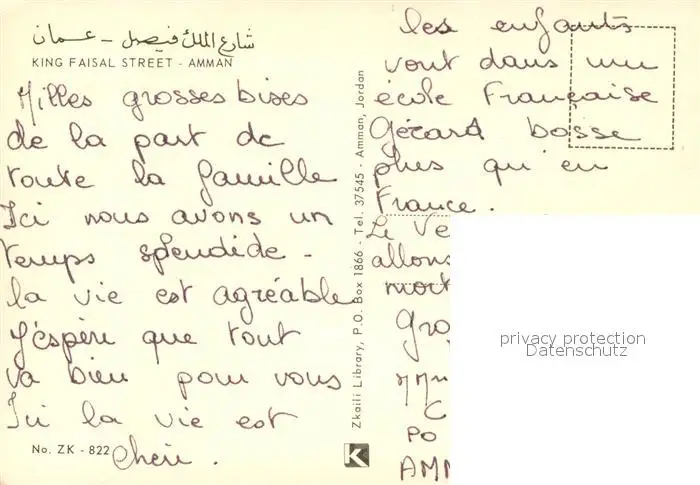 شارع الملك فيصل - عمان
KING FAISAL STREET - AMMAN
Milles grosses bises
de la part de
toute la famille
Ici nous avons un
temps splendide -
la vie est agréable
J'éspère que tout
va bien pour vous
Ici la vie est
Chère .
No. ZK - 822
Zkaili Library, P.O. Box 1866 - Tel. 37545 - Amman, Jordan
K
les enfants
vont dans une
école Française
Gérard bosse
plus qu'en
France .
Le Ve
allons
mort
Gro
Mm
C
PO
AMM
privacy protection
Datenschutz